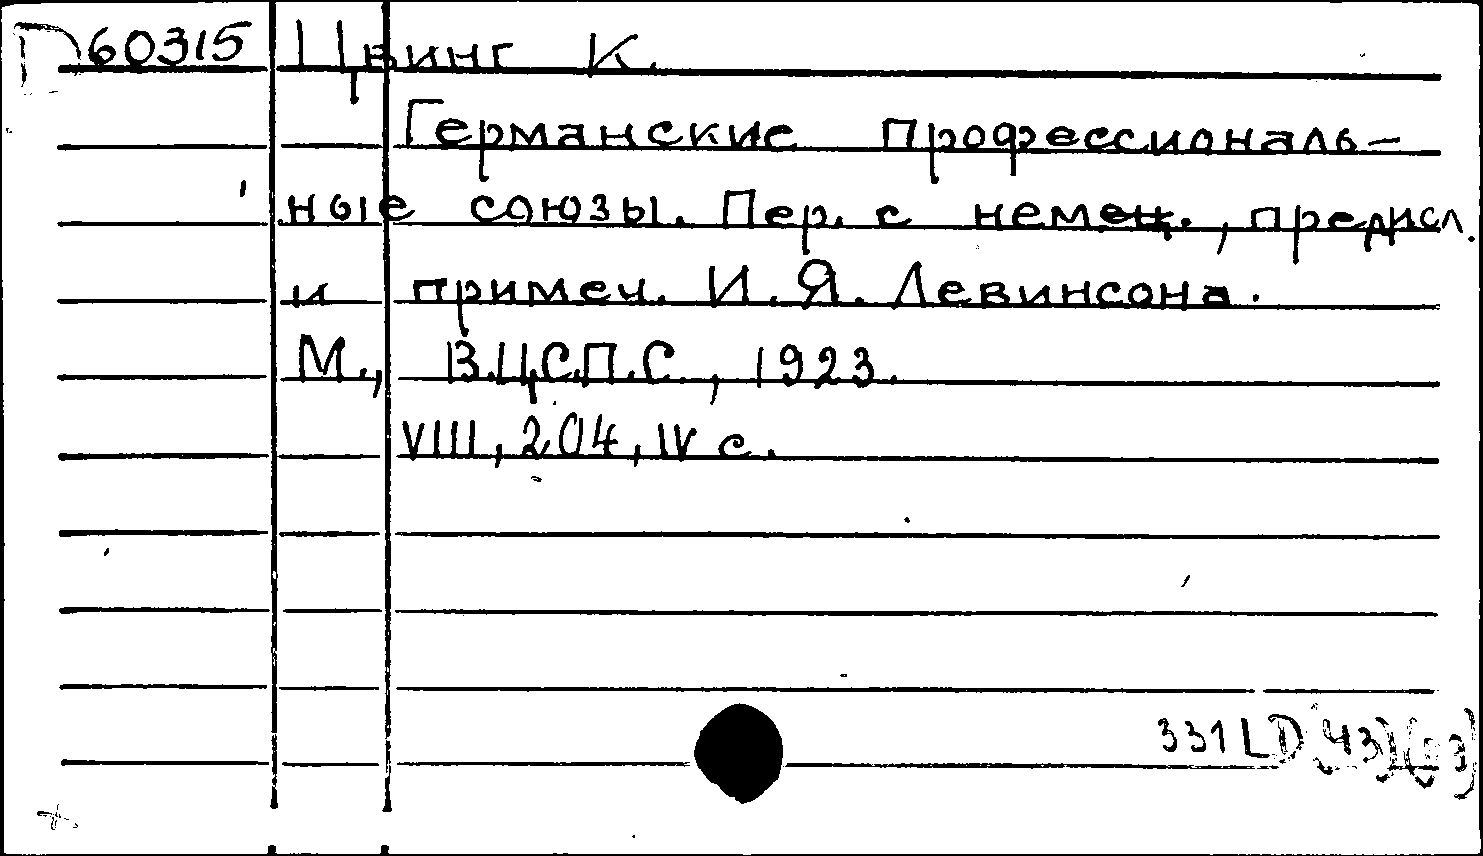 60315 Цвинг К.
Германские профессиональ-
ные союзы. Пер. с немец., предисл.
и примеч. И. Я. Левинсона.
М., В.Ц.С.П.С., 1923.
VIII, 204, IV с.
331LD(43)